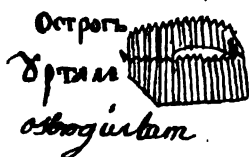 Острогъ
Ꙋртам
ostrog úrtam